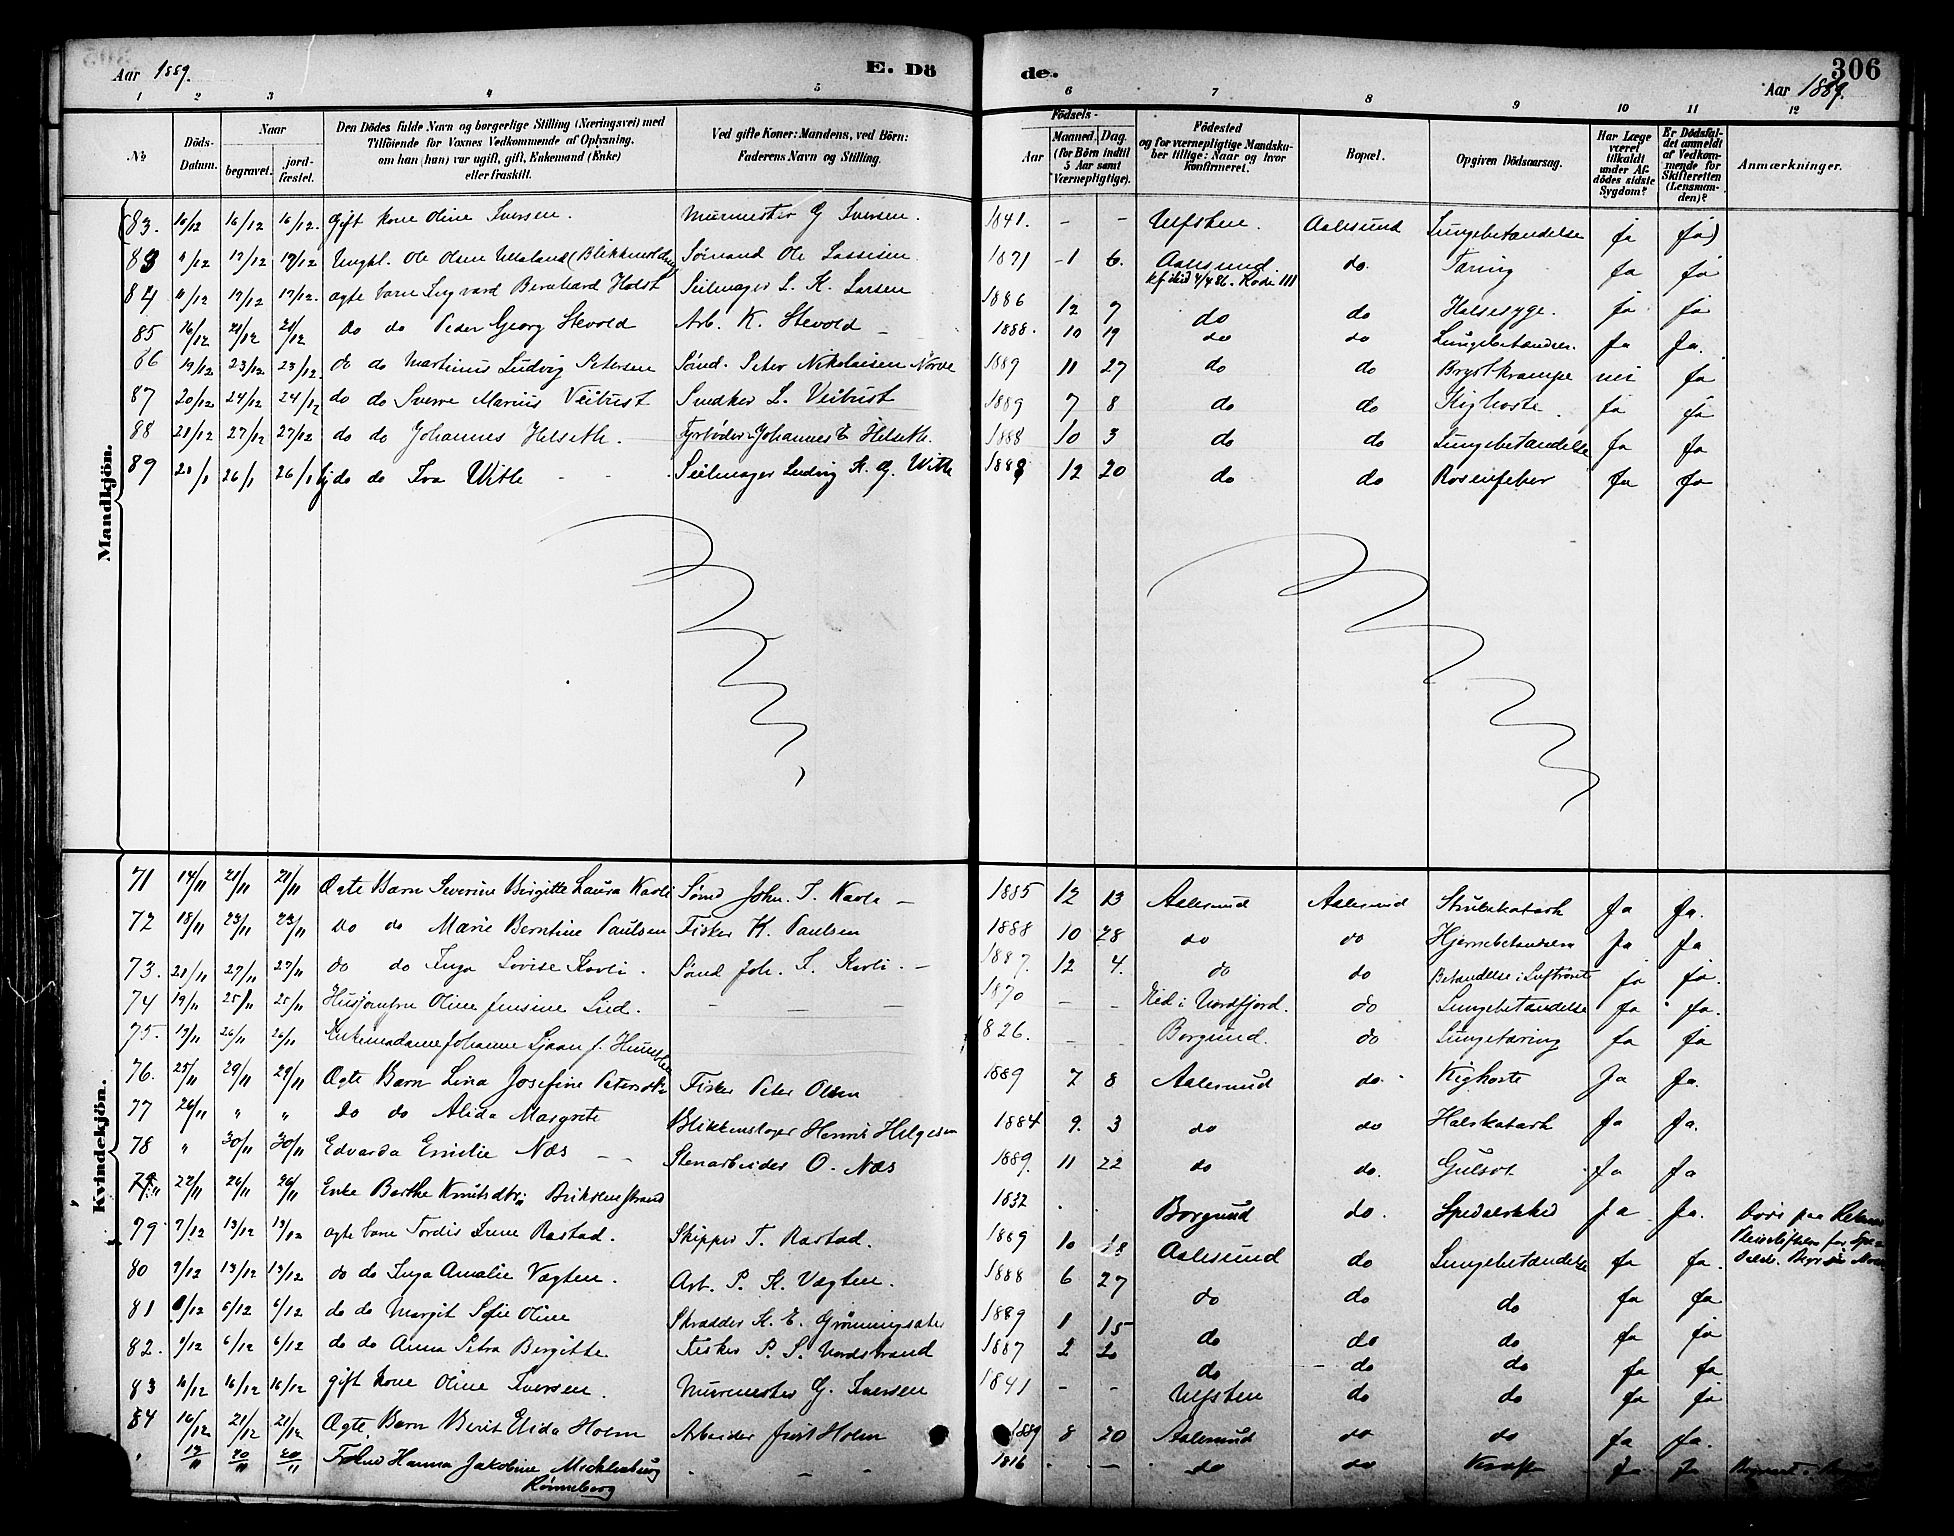 Aar 1889.
E. Dö
de.
306
Aar 1889.
1 2 3 4 5 6 7 8 9 10 11 12
No
Döds-Datum.
Naar
begravet.
jord-fæstet.
Den Dödes fulde Navn og borgerlige Stilling (Næringsvei) med Tilföiende for Voxnes Vedkommende af Oplysning, om han (hun) var ugift, gift, Enkemand (Enke) eller fraskilt.
Ved gifte Koner: Mandens, ved Börn: Faderens Navn og Stilling.
Födsels-
Aar
Maaned. Dag.
(for Börn indtil 5 Aar samt Værnepligtige).
Födested og for værnepligtige Mandskaber tillige: Naar og hvor konfirmeret.
Bopæl.
Opgiven Dödsaarsag.
Har Læge været tilkaldt under Afdödes sidste Sygdom?
Er Dödsfaldet anmeldt af Vedkommende for Skifteretten (Lensmanden)?
Anmærkninger.
Mandkjön.
(83. 10/12 16/12 16/12. Gift kone Oline Iversen. Murmester G Iversen. 1841. - - Ulfsten. Aalesund Lungebetændelse ja ja)
83 11/12 17/12 17/12 Ungkl. Ole Olsen (Blikkenslager) Sömand Ole Lassisen 1871 -1 6. Aalesund. do. Tæring ja ja
84 11/12 17/12 17/12. ægte barn Ingvard Bernhard Holst Seilmager L. K. Larsen 1886 12 7 do do Halssyge. ja ja
85 16/12 21/12 21/12 do do Peder Georg Stevold Arb. K. Stevold - 1888. 10 19 do do Lungebetændes. ja ja.
86 19/12 23/12 23/12. do do Martinus Ludvig Petersen Sömd. Peter Nikolaisen Nörve 1889 11 27 do do Brystkrampe nei ja
87 20/12 24/12 24/12 do do Sverre Marius Veibust Snedker L. Veibust 1889 7 8 do do Kighoste. ja ja
88 21/12 27/12 27/12 do do Johannes Helseth. - Fyrböder Johannes E Helseth. 1888 10 3 do do Lungebetændelse ja ja
89 20/1 26/1 26/1 do do Iva Witte - - . Seilmager Ludvig K. G. Witte 1888 12 20 do do Rosenfeber ja ja
Kvindekjön.
71 14/11 21/11 21/11 Ægte Barn Severine Birgitte Laura Kavli Sömd John. I. Kavli - 1885 12 13 Aalesund Aalesund Strubekatarh ja ja.
72 18/11 23/11 23/11 do do Marie Berntine Paulsen Fisker K. Paulsen 1888 10 28 do do Hjernebetændsen ja ja
73. 21/11 27/11 27/11 do do Inga Lovise Kavli. Sömd Joh. I. Kavli. - 1887. 12 4. do do Betændelse i Luftröret ja ja.
74 19/11 25/11 25/11 Husjomfru Oline Jensine Lied. - - - 1870 - - Eid i Nordfjord. do Lungebetændelse ja ja.
75. 19/11 26/11 26/11 Enkemadame Johanne Ljaan f. 1826. - - Borgund. do Lungetæring ja ja
76. 25/11 29/11 29/11 Ægte Barn Lina Josefine Fisker Peter Olsen 1889 7 8 Aalesund do. Kighoste ja ja.
77 26/11 " " do do Alida Margrete Blikkenslager Henrik Helgesen 1884 9. 3 do do Halskatarh ja ja.
78 " 30/11 30/11 Edvarda Emilie Næs - - Stenarbeider O. Næs 1889. 11 22 do do. Gulsot ja ja
79. 22/11 26/11 26/11 Enke Berthe Knudsdtr. 1832 . . Borgund do. Spedalskhed ja ja. Döde paa
79 7/12 13/12 13/12 ægte barn Tordis Lune Rastad. Skipper T. Rastad. 1889 10 18 Aalesund do Lungebetændelse ja ja. Pleiestiftelsen for Spe-
80 7/12 13/12 13/12 do do Inga Amalie Vegten. Arb. P. K. Vegten. 1888 6 27 do do do ja ja
81 1/12 6/12 6/12 do do Margit Sofie Oline Skrædder K. E. Grönningsæter 1889 1 15 do do do ja ja
82. 1/12 6/12 6/12 do do Anna Petra Bergitte Fisker P. S. Nordstrand 1887 2 20 do do do ja ja.
83 10/12 16/12 16/12 gift kone Oline Iversen. Murmester G. Iversen 1841 - - Ulfsten do do ja ja
84 16/12 21/12 21/12 Ægte Barn Berit Elida Holm Arbeider Just Holm 1889 8 20 Aalesund do do ja ja.
" 12/11 20/11 20/11 Hanna Jakobine Mechlenburg Rönneberg - - - 1816 - - do do ja ja